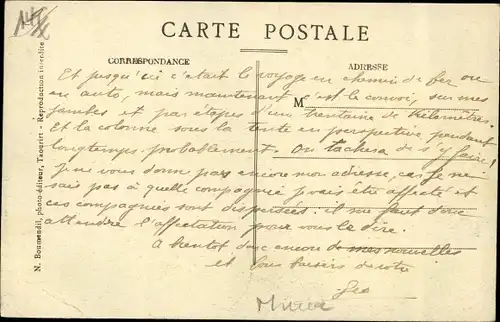 CARTE POSTALE
CORRESPONDANCE
ADRESSE
Et jusqu'ici c'était le voyage en chemin de fer ou
en auto, mais maintenant c'est le convoi, sur mes
jambes et par étapes d'une trentaine de kilomètres.
Et la colonne sous la tente en perspective pendant
longtemps probablement. On tachera de s'y faire!
Je ne vous donne pas encore mon adresse, car je ne
sais pas à quelle compagnie je vais être affecté et
ces compagnies sont dispersées: il me faut donc
attendre l'affectation pour vous le dire.
A bientôt donc encore de mes nouvelles
et bons baisers de votre
Geo
M
N. Boumendil, photo-éditeur, Taourirt - Reproduction interdite